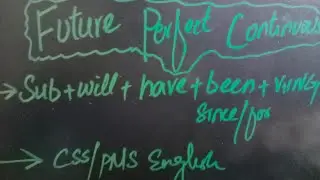 Future Perfect Continuous
→ Sub + will + have + been + V.ing
Since/for
→ CSS/PMS English